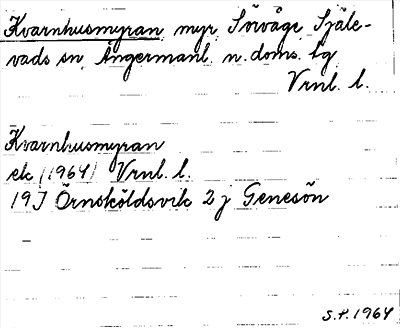 Kvarnhusmyran, myr, Sörvåge Själe-
vads sn, Ångermanl. n. doms. lg
Vrnl. l.
Kvarnhusmyran
ek (1964) Vrnl. l.
19J Örnsköldsvik 2 j Genesön
S.P. 1964